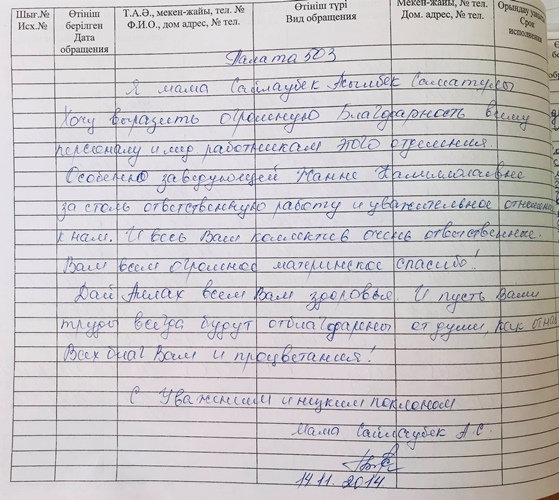 Шығ.№ Исх.№
Өтініш берілген Дата обращения
Т.А.Ә., мекен-жайы, тел. № Ф.И.О., дом адрес, № тел.
Өтініш түрі Вид обращения
Мекен-жайы, № тел. Дом. адрес, № тел.
Срок исполнения
Палата 503
Я мама Сайлаубек
Хочу выразить огромную благдарность всему
персоналу и мед работникам этого отделения.
Особенно заведующей
за столь ответственную работу и уважительное
к нам. И весь Ваш коллектив очень ответственные.
Вам всем огромное материнское спасибо!
Дай Аллах всем Вам здоровья. И пусть Ваши
труды всегда будут отблагдарены от души, как
Всех благ Вам и процветания!
С Уважением и низким поклоном
Мама Сайлаубек А.С.
14.11.2014